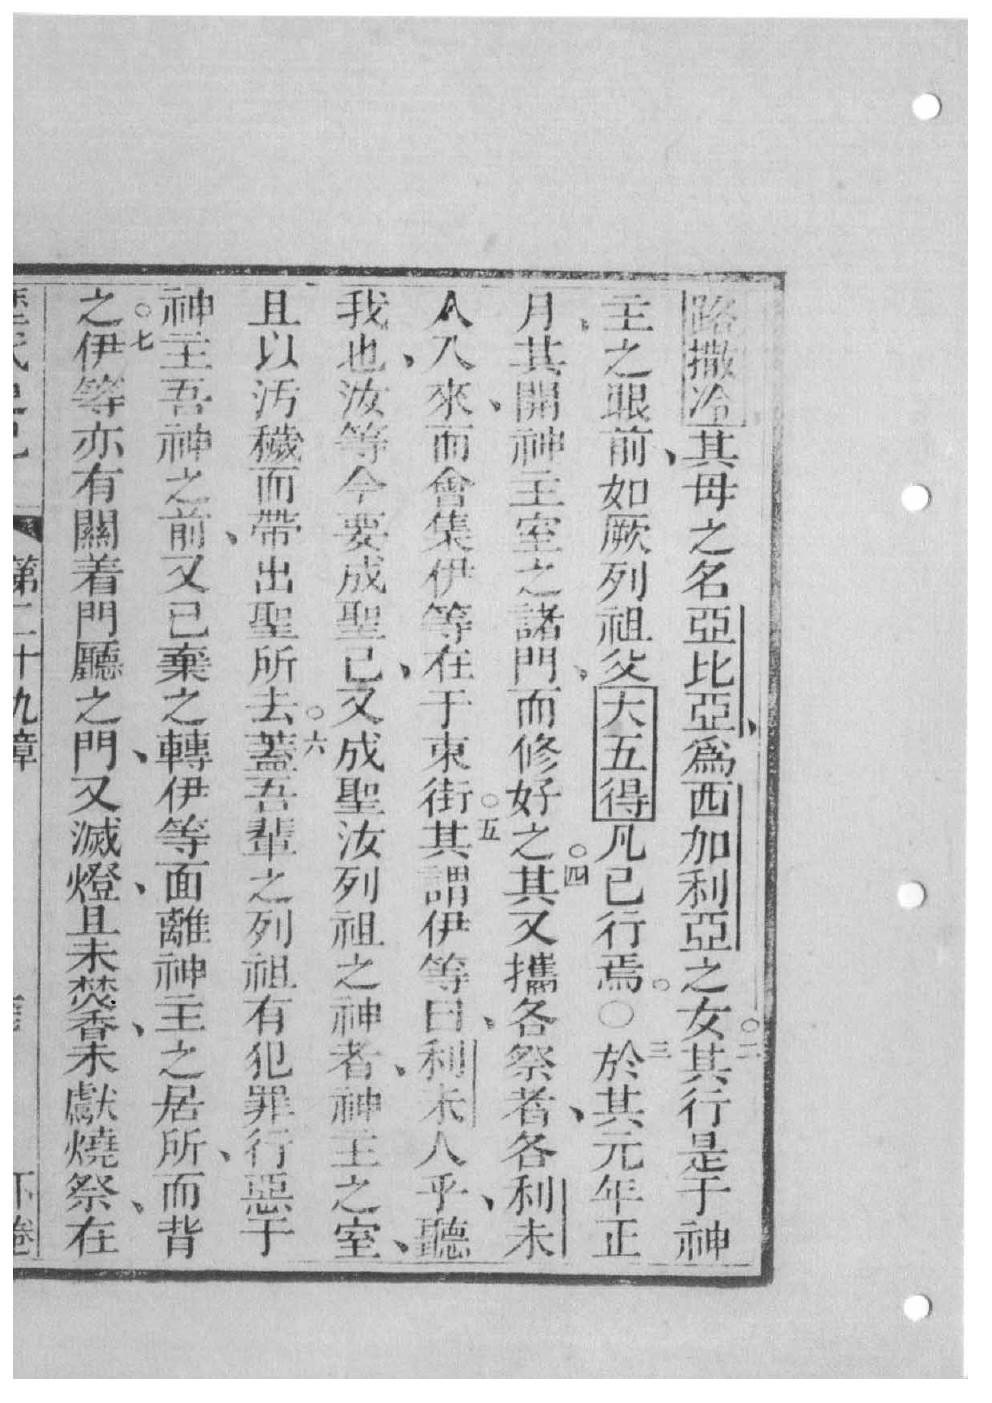 路撒冷其母之名亞比亞、爲西加利亞之女○二其行是于神
主之眼前、如厥列祖父大五得凡已行焉。○三於其元年正
月、其開神主室之諸門、而修好之○四其又攜各祭者、各利未
人入來、而會集伊等在于東街○五其謂伊等曰、利未人乎、聽
我也、汝等今要成聖己、又成聖汝列祖之神者、神主之室、
且以汚穢而帶出聖所去○六蓋吾輩之列祖有犯罪行惡于
神主吾神之前、又已棄之、轉伊等面離神主之居所、而背
之○七伊等亦有關着門廳之門、又滅燈、且未焚香、未獻燒祭、在
第二十九章 下卷